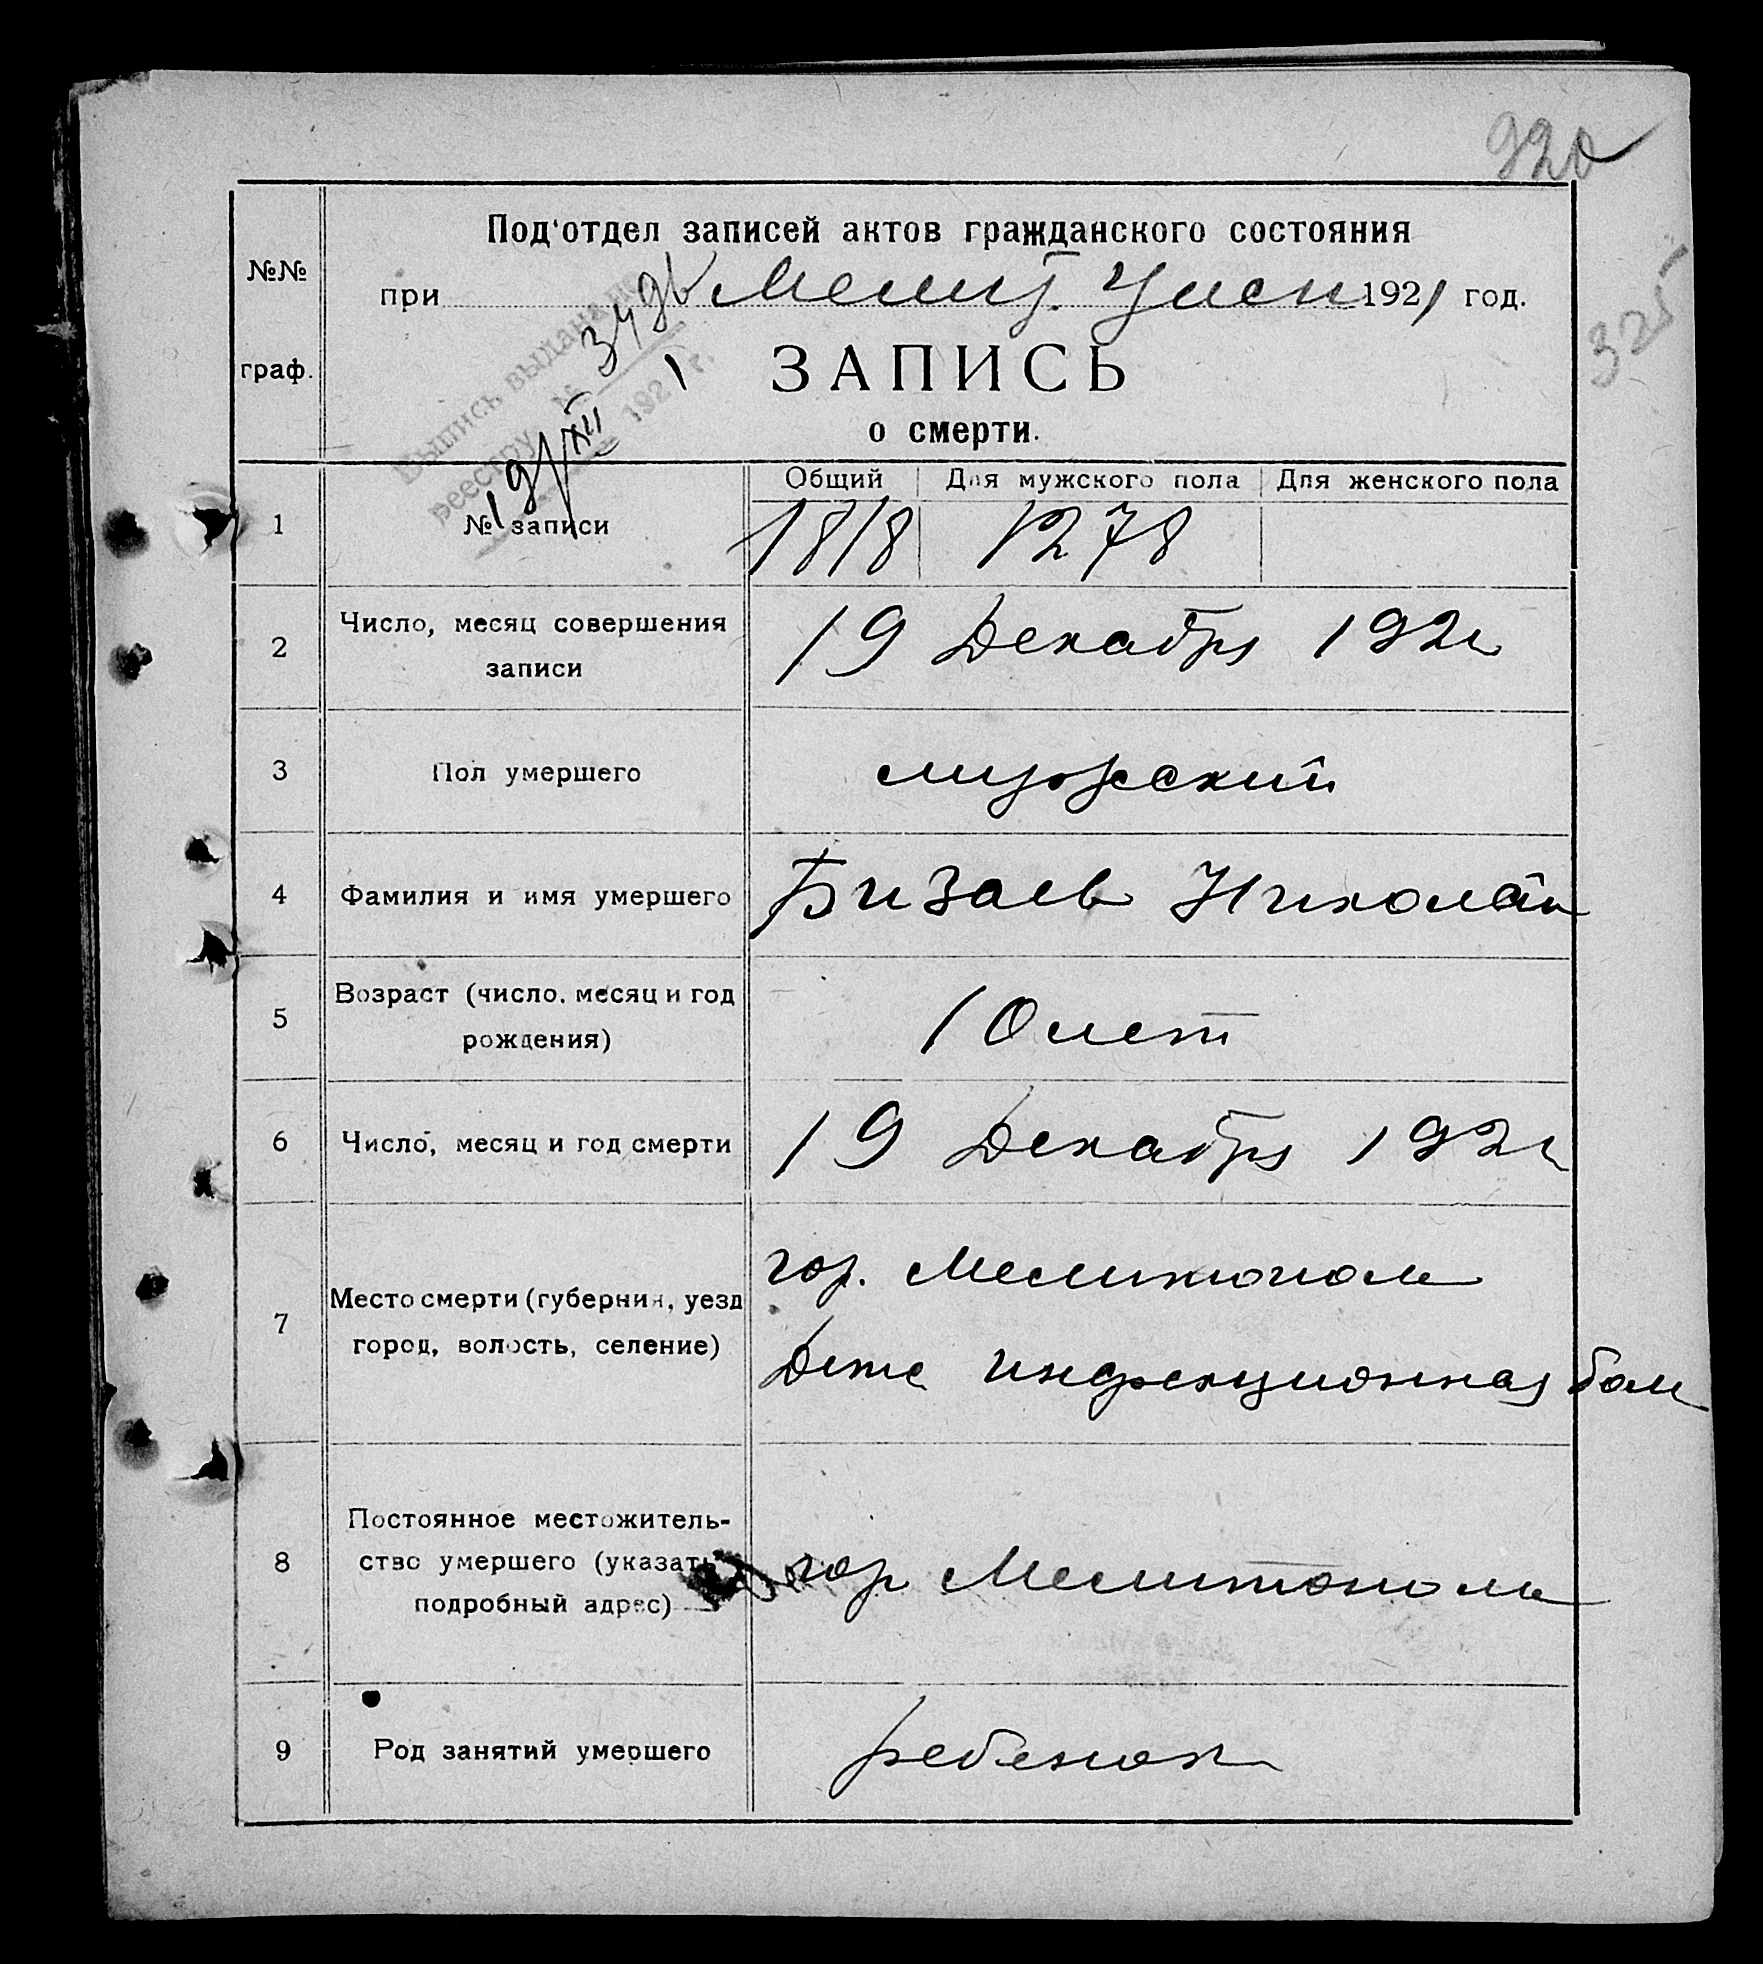 920
Под'отдел записей актов гражданского состояния
№№
при Мелит. Уисп 1921 год.
325
граф.
Выпись выдана по
реестру № 3496
19/XII 1921 г.
ЗАПИСЬ
о смерти.
Общий Для мужского пола Для женского пола
1 № записи 1818 1278
2 Число, месяц совершения
записи
19 Декабря 1921
3 Пол умершего мужеский
4 Фамилия и имя умершего Бизаев Николай
5 Возраст (число, месяц и год
рождения)
10 лет
6 Число, месяц и год смерти 19 Декабря 1921
7 Место смерти (губерния, уезд
город, волость, селение)
гор. Мелитополь
Детс инфекционная бол
8 Постоянное местожитель-
ство умершего (указать
подробный адрес)
гор Мелитополь
9 Род занятий умершего ребенок